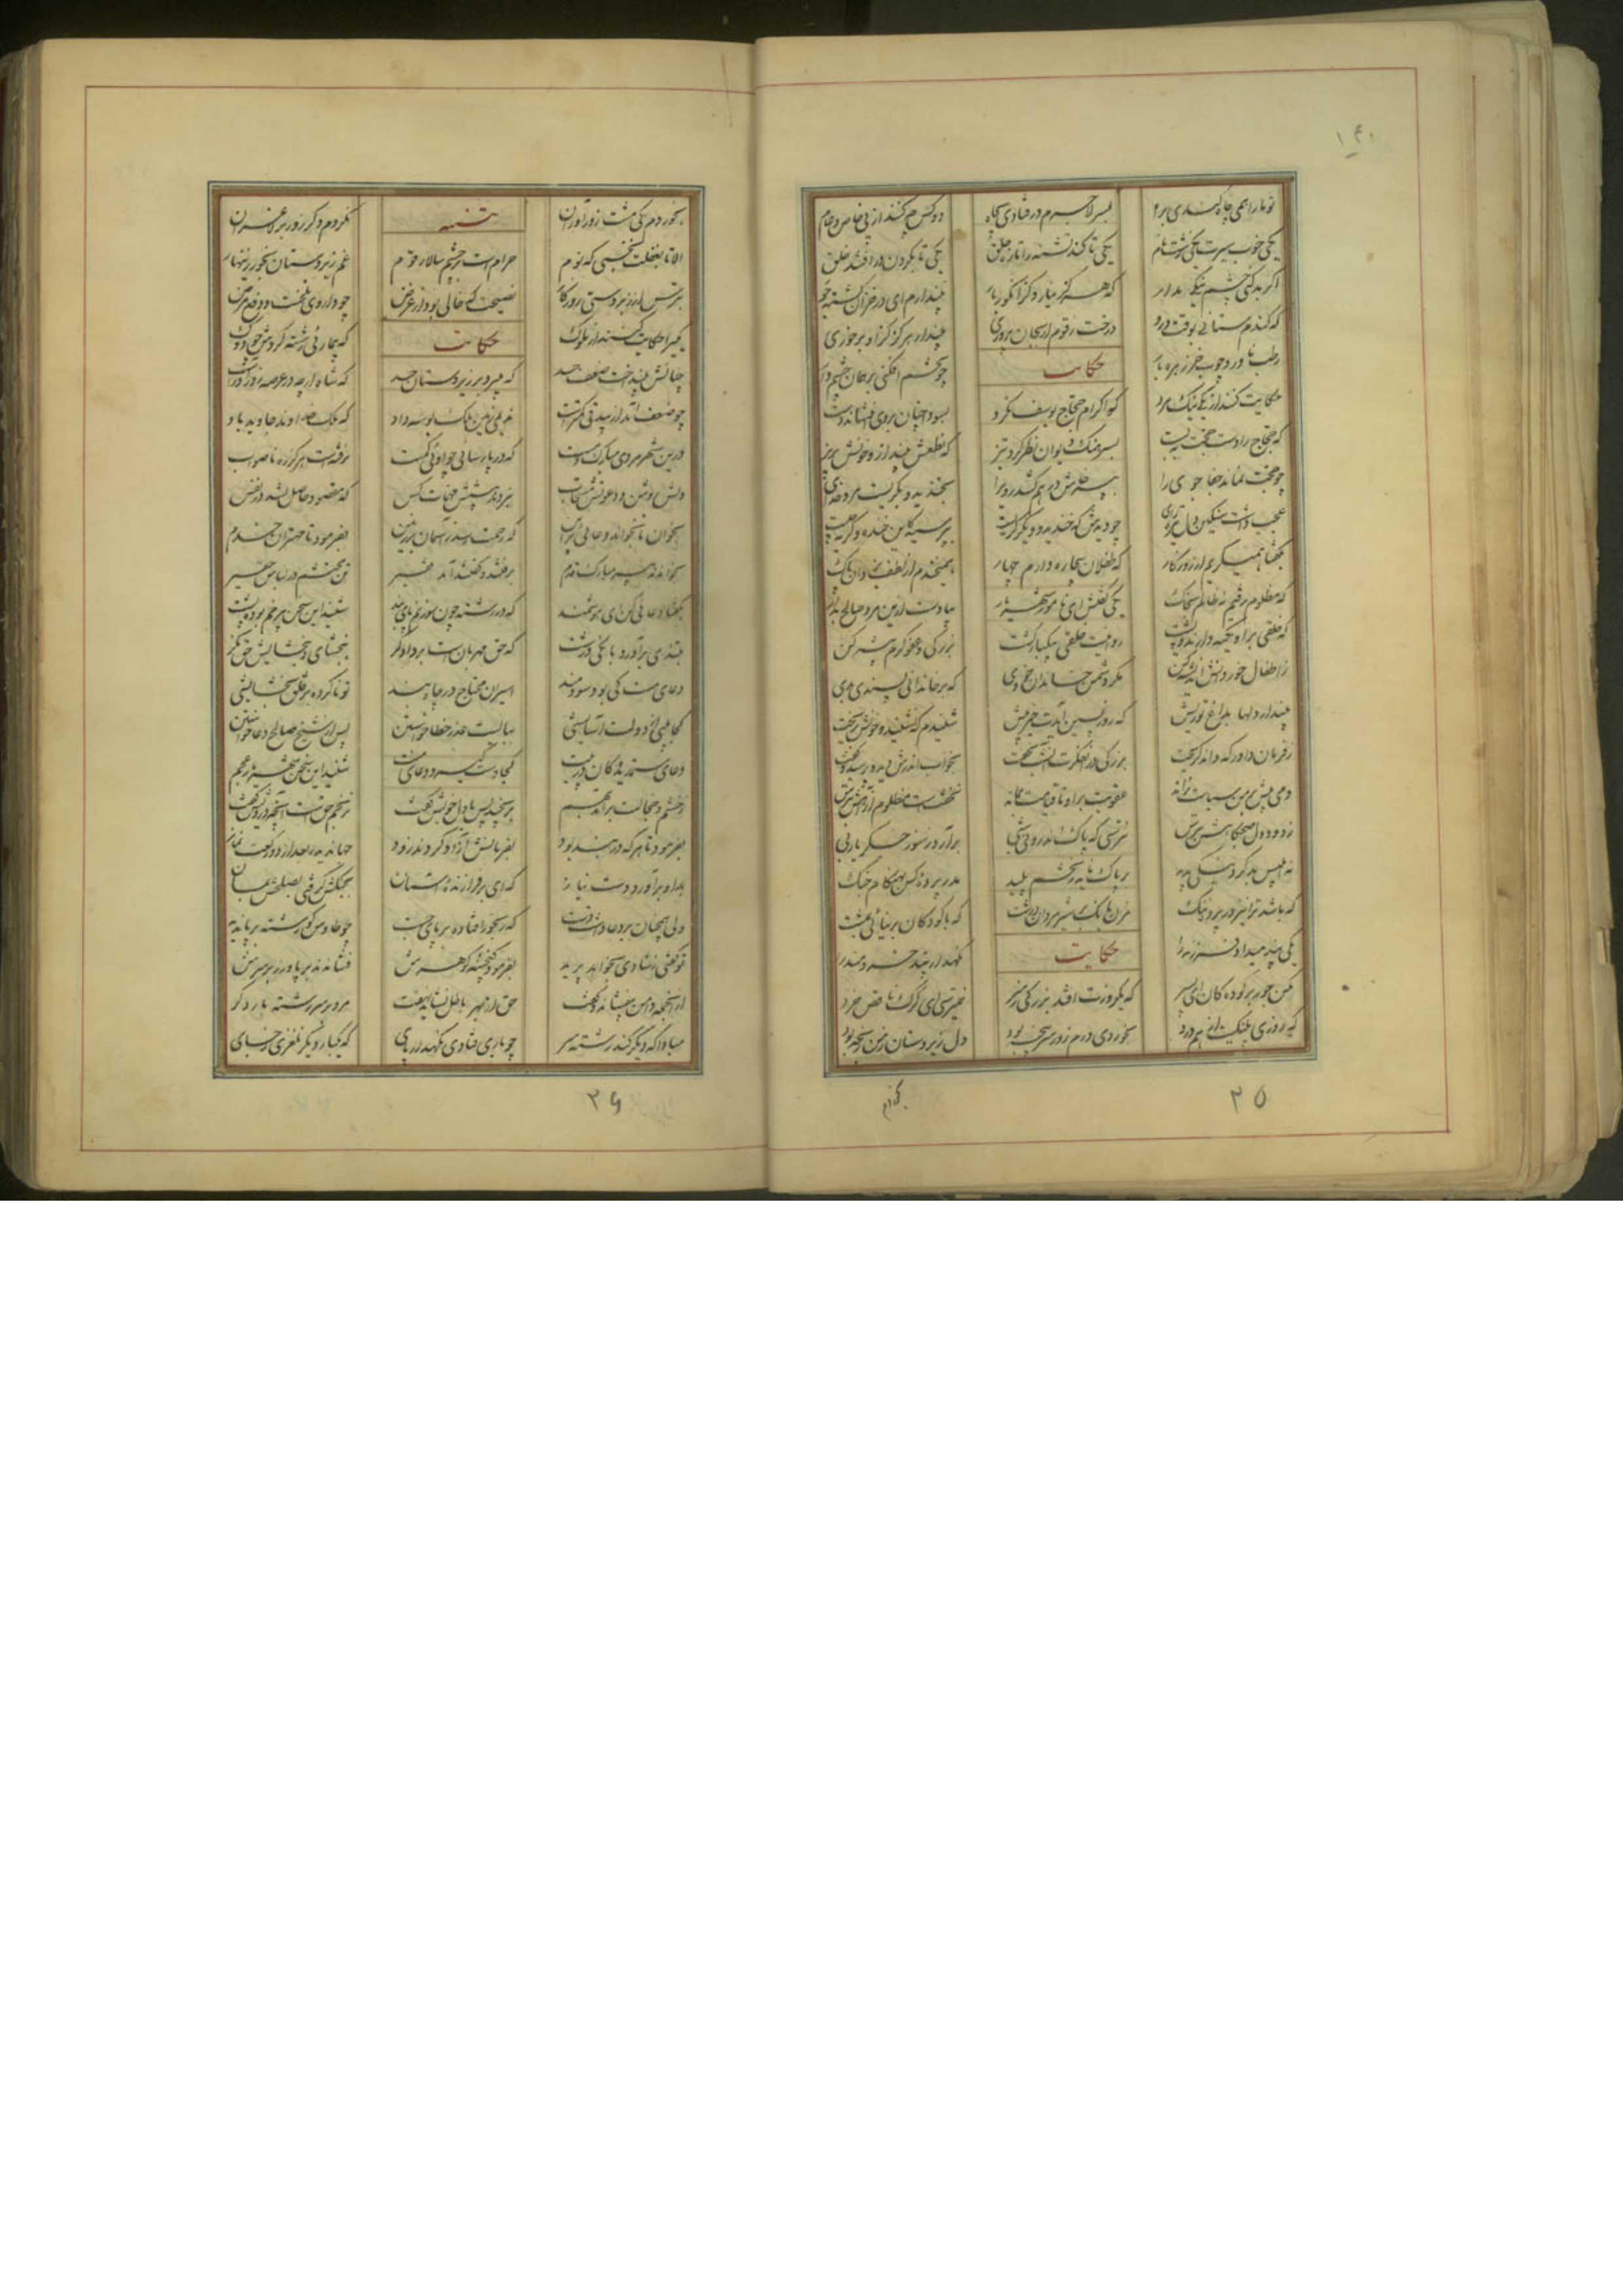 ۱۴۰
تو ما را همی چاه کندی براه	بسر لاجرم در فتادی بچاه	دو کس چه کنند از پی خاص و عام
یکی خوب سیرت یکی زشت نام	یکی تا کند تشنه را تازه حلق	یکی تا بگردن در افتند خلق
اگر بد کنی چشم نیکی مدار	که هرگز نیارد گز انگور بار	نپندارم ای در خزان کشته جو
که گندم ستانی بوقت درو	درخت زقوم ار بجان پروری	مپندار هرگز کزاو برخوری
رطب ناورد چوب خرزهره بار	حکایت	چو تخم افکنی بر همان چشم دار
حکایت کنند از یکی نیک مرد	کو اکرام حجاج یوسف نکرد
که حجاج را دست حجت ببست	بسرهنگ دیوان نظر کرد تیز	که نطعش بینداز و خونش بریز
چو حجت نماند جفا جوی را	بپرخاش در هم کشد روی را	بخندید و بگریست مرد خدای
عجب داشت سنگین دل تیره رای	چو دیدش که خندید و دیگر گریست	بپرسید کاین خنده و گریه چیست
بگفتا همیگریم از روزگار	که طفلان بیچاره دارم چهار	همیخندم از لطف یزدان پاک
که مظلوم رفتم نه ظالم بخاک	یکی گفتش ای نامور شهریار	بیا دست ازین مرد صالح بدار
که خلقی براو تکیه دارند و پشت	روا نیست خلقی بیکبار کشت	بزرگی و عفو و کرم پیشه کن
ز اطفال خوردش اندیشه کن	مگر دشمن خاندان خودی	که بر خاندانی پسندی بدی
مپندار دلها بداغ تو ریش	که روز پسین آیدت خیر پیش	شنیدم که نشنید و خونش بریخت
ز فرمان داور که داند گریخت	بزرگی در آن فکرت آنشب بخفت	بخواب اندرش دید و پرسید و گفت
دمی بیش بر من سیاست نراند	عقوبت براو تا قیامت بماند	نخفتست مظلوم از آهش بترس
ز دود دل صبحگاهش بترس	نترسی که پاک اندرونی شبی	برآرد ز سوز جگر یاربی
نه ابلیس بد کرد و نیکی ندید	بر پاک ناید ز تخم پلید	مدر پرده کس بهنگام جنگ
که باشد ترا نیز در پرده ننگ	مزن بانگ بر شیرمردان درشت	که با کودکان بر نیائی بمشت
یکی پند میداد فرزند را	حکایت	نگهدار پند خردمند را
مکن جور بر کودکان ای پسر	که یکروزت افتد بزرگی بسر	نمیترسی ای گرگ ناقص خرد
که روزی پلنگیت از هم درد	بخوردی درم زور سرپنجه بود	دل زیردستان ز من رنجه بود
۲۵	بخوردم
بخوردم یکی مشت زورآوران	تنبیه	نکردم دگر زور بر لاغران
الا تا بغفلت نخسبی که نوم	حرام است بر چشم سالار قوم	غم زیردستان بخور زینهار
بترس از زبردستی روزگار	نصیحت که خالی بود از غرض	چو داروی تلخست و دفع مرض
یکیرا حکایت کنند از ملوک	حکایت	که بیماری رشته کردش چو دوک
چنانش بینداخت ضعف جسد	که میبرد بر زیردستان حسد	که شاه ارچه در عرصه زورآورست
چو ضعف آمد از بیدقی کمترست	ندیمی زمین ملک بوسه داد	که ملک خداوند جاوید باد
درین شهر مردی مبارک دمست	که در پارسائی چو اوئی کمست	نرفته است هرگز ره ناصواب
دلش روشن و دعوتش مستجاب	نبردند پیشش مهمات کس	که مقصود حاصل نشد در نفس
بخوان تا بخواند دعائی براین	که رحمت رسد ز آسمان بر زمین	بفرمود تا مهتران خدم
بخواندند پیر مبارک قدم	برفتند و گفتند آمد فقیر	تن محتشم در لباس حقیر
بگفتا دعائی کن ای هوشمند	که در رشته چون سوزنم پای بند	شنید این سخن پیر خم بوده پشت
بتندی برآورد بانگی درشت	که حق مهربان است بر دادگر	ببخشای و بخشایش حق نگر
دعای منت کی بود سودمند	اسیران محتاج در چاه و بند	تو ناکرده بر خلق بخشایشی
کجا بینی از دولت آسایشی	ببایست عذر خطا خواستن	پس از شیخ صالح دعا خواستن
کجا دست گیرد دعای منت	دعای ستمدیدگان در پیت	شنید این سخن شهریار عجم
ز خشم و خجالت برآمد بهم	برنجید پس با دل خویش گفت	نرنجم حق است آنچه درویش گفت
بفرمود تا هر که در بند بود	بفرمانش آزاد کردند زود	جهاندیده بعد از دو رکعت نماز
بداور برآورد دست نیاز	که ای برفرازنده آسمان	بجنگش گرفتی بصلحش بمان
ولی همچنان بر دعا داشت دست	که رنجور افتاده بر پای جست	تو گفتی ز شادی بخواهد پرید
چو طاوس کو رشته بر پا ندید	بفرمود گنجینه گوهرش	فشاندند بر پا و زر بر سرش
حق از بهر باطل نشاید نهفت	از آنجمله دامن بیفشاند و گفت	مرو بر سر رشته بار دگر
مبادا که دیگر کند رشته سر	چو باری فتادی نگهدار پای	که یکبار دیگر نلغزی ز جای
۲۶